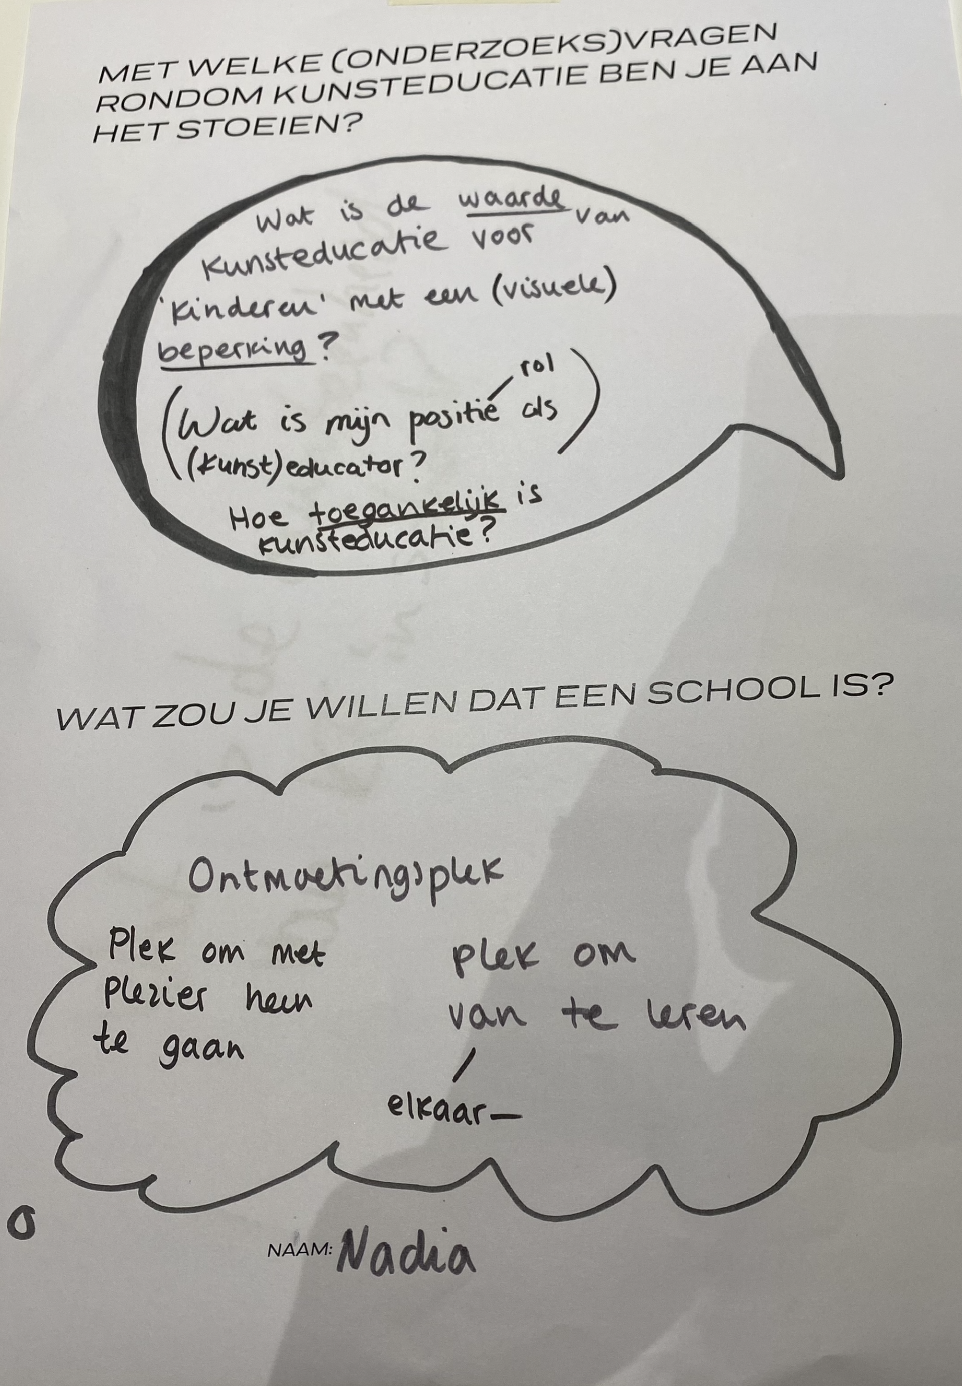 MET WELKE (ONDERZOEKS)VRAGEN
RONDOM KUNSTEDUCATIE BEN JE AAN
HET STOEIEN?
Wat is de waarde van
Kunsteducatie voor
'Kinderen' met een (visuele)
beperking?
rol
(Wat is mijn positie als
(kunst)educator?)
Hoe toegankelijk is
kunsteducatie?
WAT ZOU JE WILLEN DAT EEN SCHOOL IS?
Ontmoetingsplek
Plek om met
plezier heen
te gaan
plek om
van te leren
elkaar
NAAM: Nadia